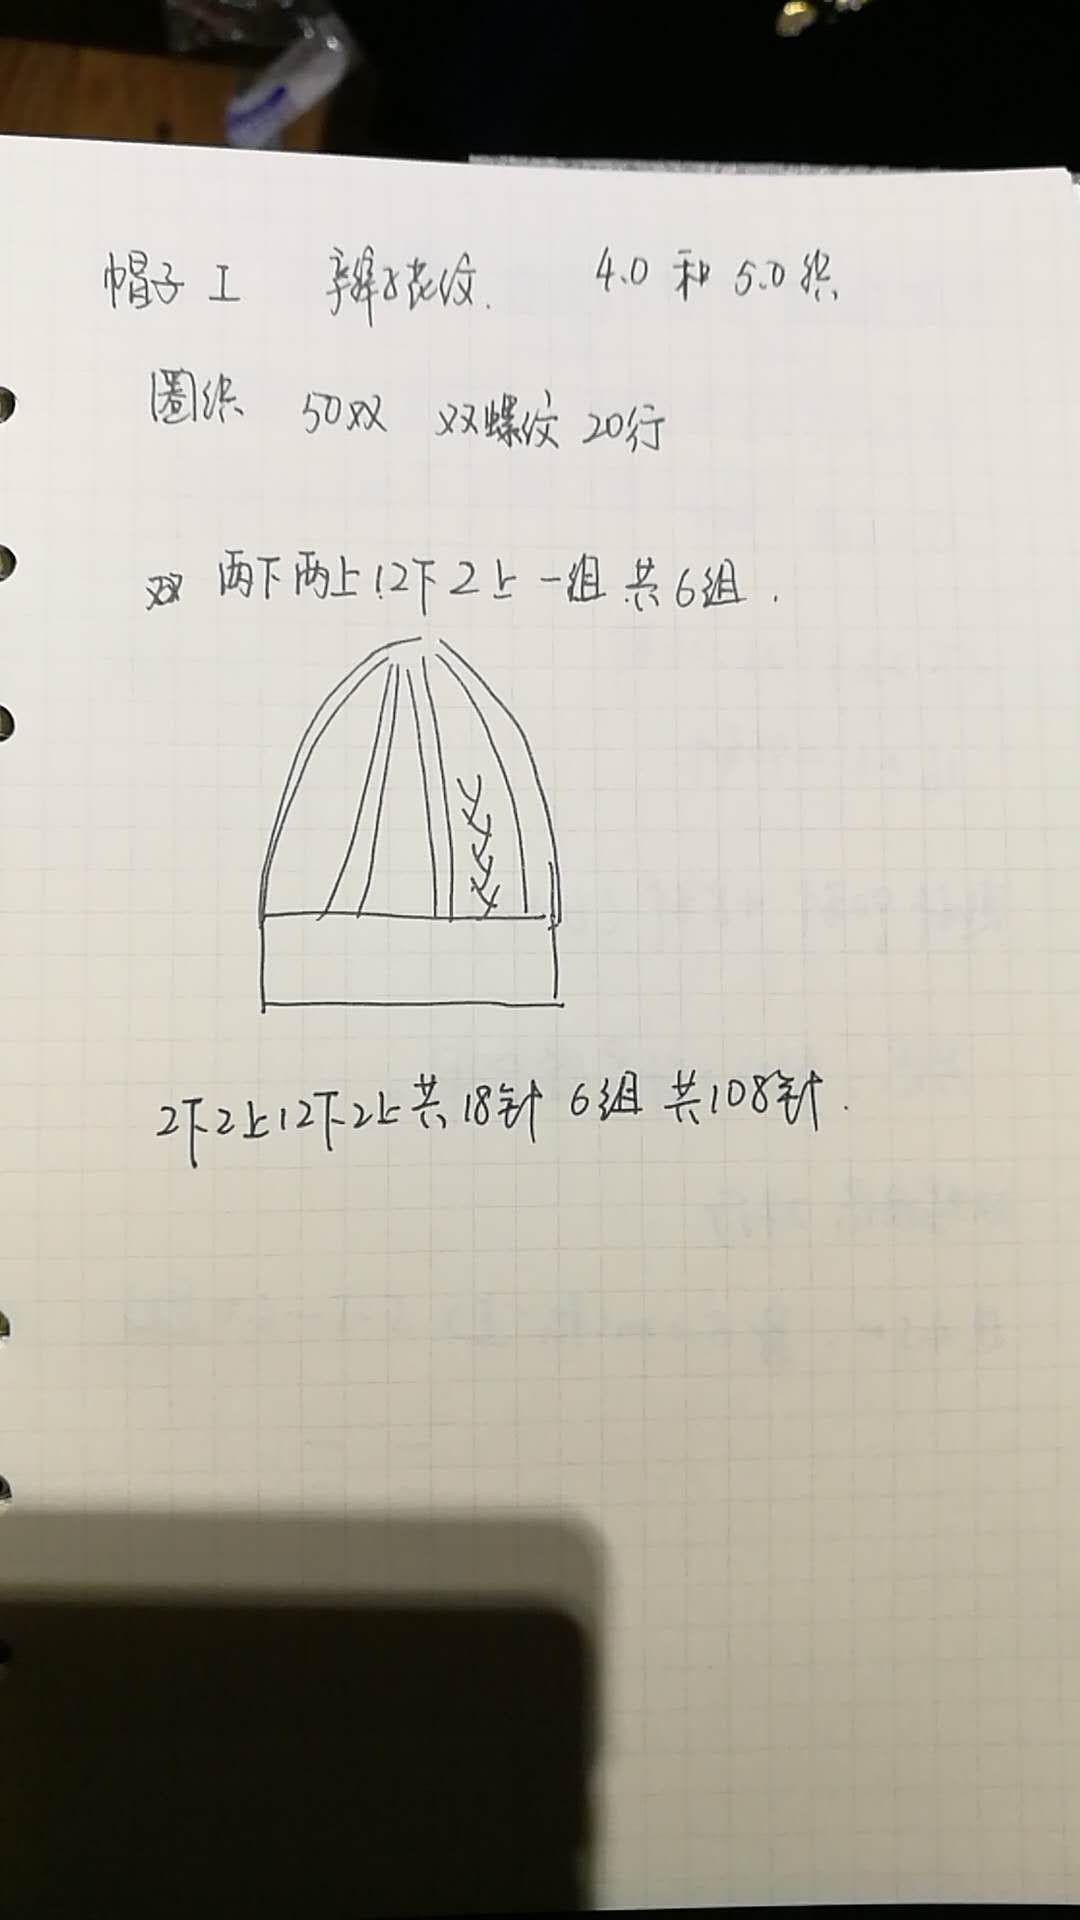 帽子 I 辫子花纹. 4.0 和 5.0 织
圈织 50双 双螺纹 20行
两下两上12下2上一组 共6组.
2下2上12下2上共18针 6组 共108针.